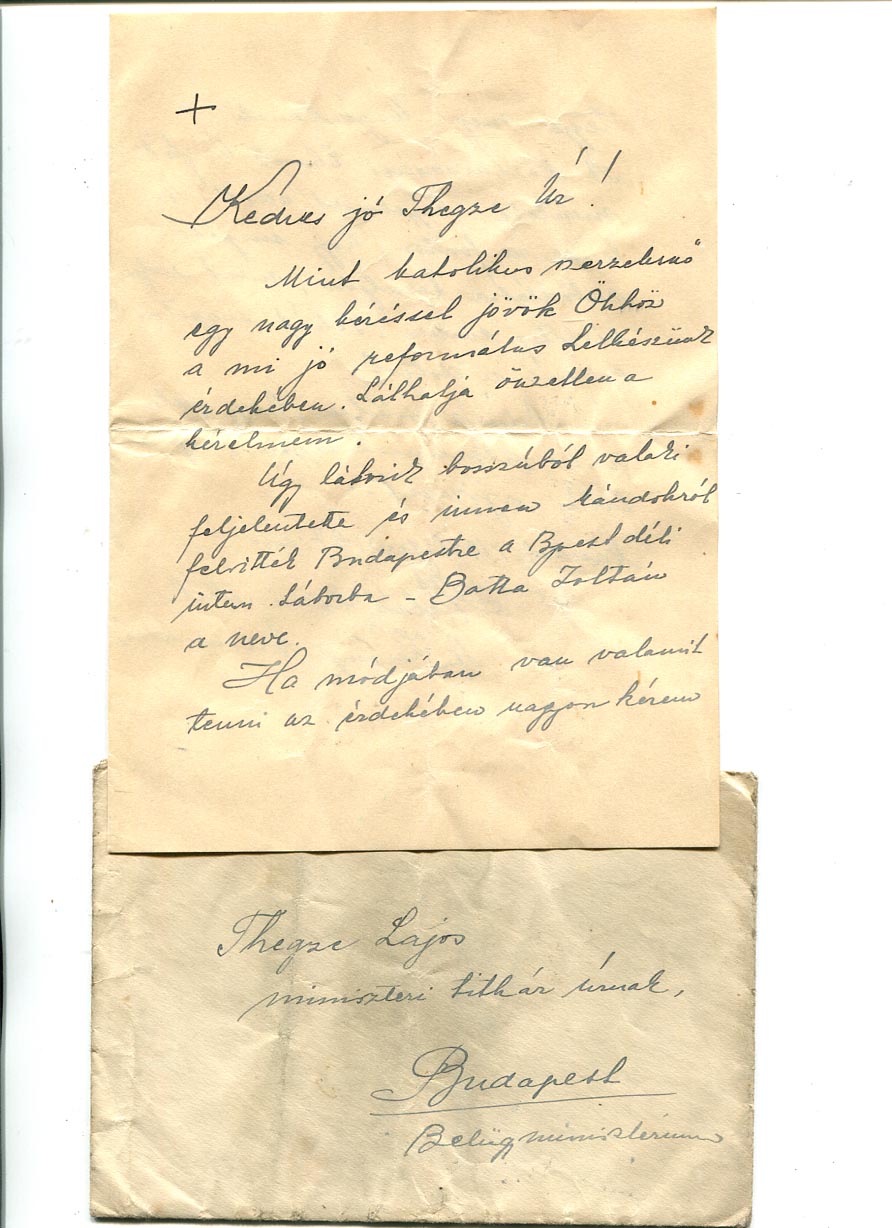 +
Kedves jó Thegze Úr!
Mint katolikus szerzetesnő
egy nagy kéréssel jövök Önhöz
a mi jó református Lelkészünk
érdekében. Láthatja önzetlen a
kérelmem.
Úgy látszik bosszúból valaki
feljelentette és innen Kándokról
felvitték Budapestre a Bpest déli
intern. táborba - Batta Zoltán
a neve.
Ha módjában van valamit
tenni az érdekében nagyon kérem
Thegze Lajos
miniszteri titkár úrnak,
Budapest
Belügyminisztérium